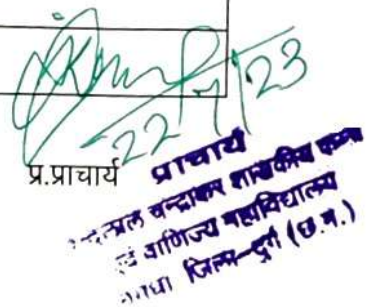 22/7/23
प्र.प्राचार्य
प्राचार्य
चन्द्राकर शासकीय कला
एवं वाणिज्य महाविद्यालय
जिला-दुर्ग (छ.ग.)